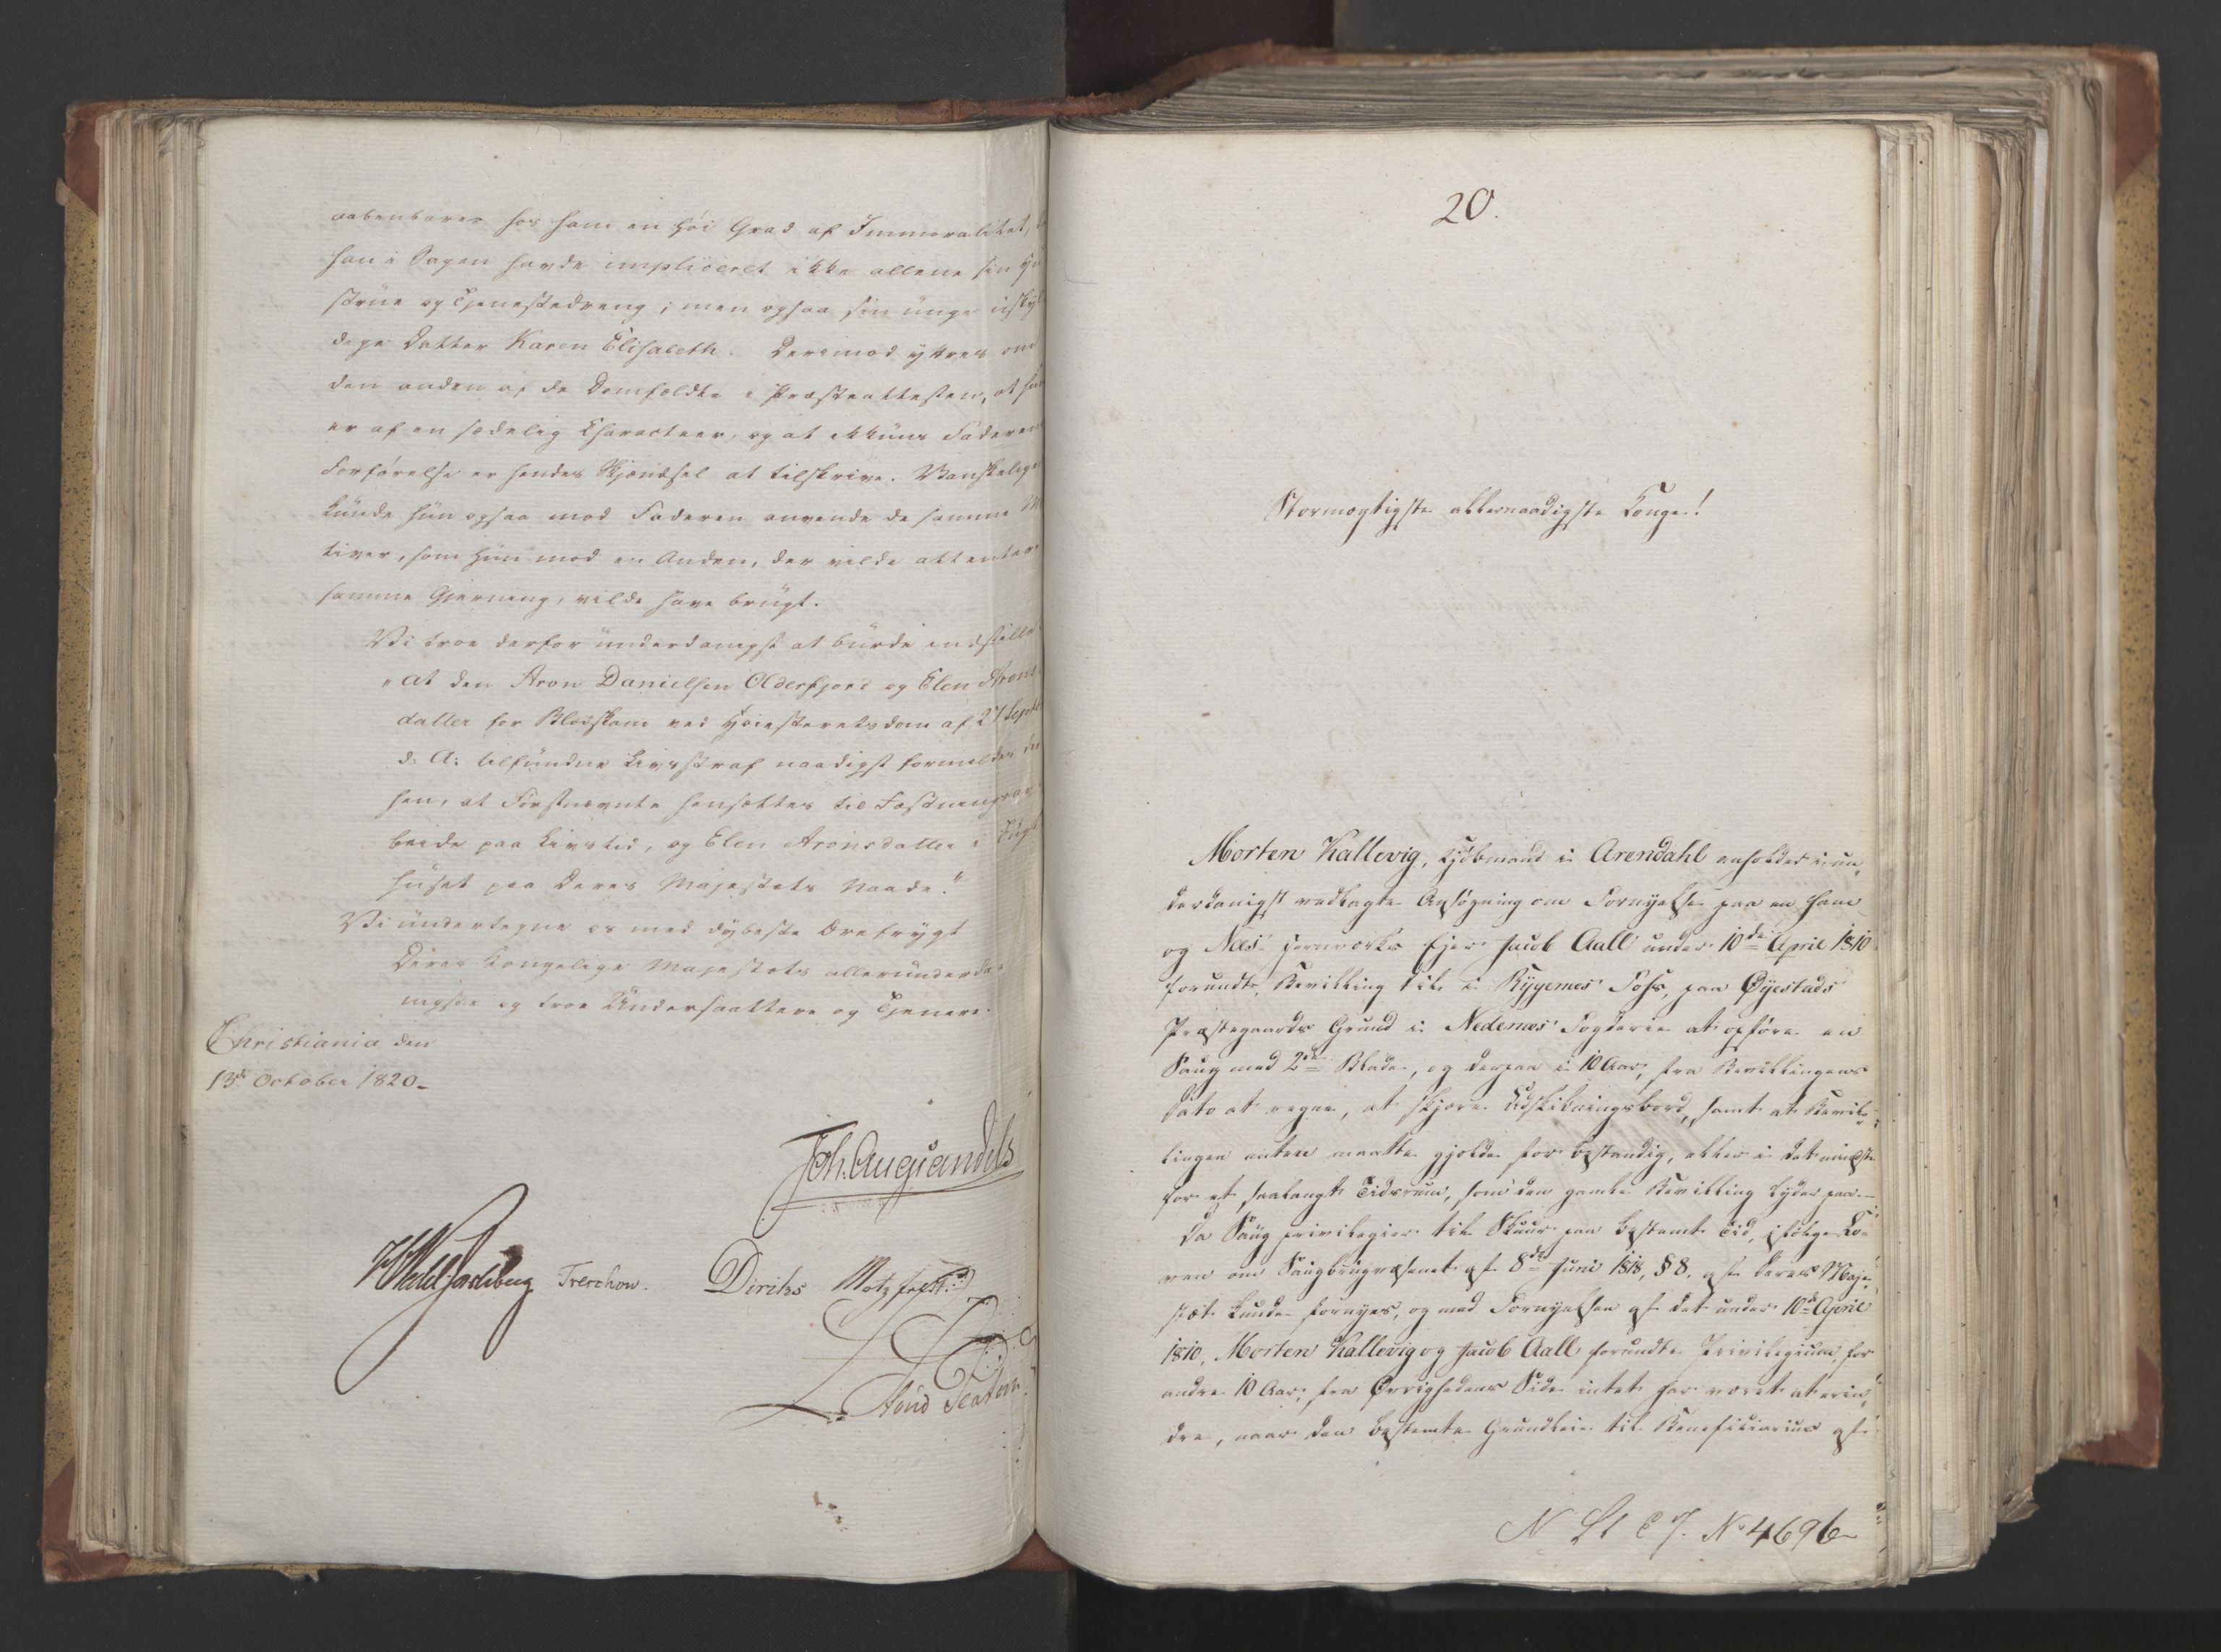 aabenbarer hos ham en høi Grad af Immoralitet,
han i Sagen havde impliceret ikke allene sin
strue og Tjenestedreng; men ogsaa sin unge uskyl
dige Datter Karen Elisabeth. Derimod yttres om
den anden af de Domfældte i Præsteattesten, at hun
er af en sædelig Characteer, og at ikkuns Faderens
Forførelse er hendes Skjændsel at tilskrive. Vanskelige
kunde hun ogsaa mod Faderen anvende de samme
tiver, som hun mod en Anden, der vilde attentere
samme Gjerning, vilde have brugt.
Vi troe derfor underdanigst at burde indstille
"at den Aron Danielsen Olderfjord og Elen Arons
datter for Blodskam ved Høiesteretsdom af 27 Septbr
d. A. tilfundne Livsstraf naadigst formildes der
hen, at Førstnævnte hensættes til Fæstningsar
beide paa Livstid, og Elen Aronsdatter i Tugt
huset paa Deres Majestæts Naade."
Vi undertegne os med dybeste Ærefrygt
Deres Kongelige Majestæts allerunderda
nigste og troe Undersaattere og Tjenere.
Christiania den
13de October 1820.
Joh. Aug. Sandels
HWedel Jarlsberg Treschow. Diriks Motzfeldt
20.
Stormægtigste allernaadigste Konge!
Morten Kallevig, Kjøbmand i Arendahl anholder i un
derdanigst vedlagte Ansøgning om Fornyelse paa en ham
og Næs Jernværks Ejer Jacob Aall under 10de April 1810
forundt Bevilling til i Rygenes Fos, paa Øyestads
Præstegaards Grund i Nedenæs Fogderie at opføre en
Saug med 2de Blade, og derpaa i 10 Aar, fra Bevillingens
Dato at regne, at skjære Udskibningsbord, samt at Bevil
lingen enten maatte gjælde for bestandig, eller i det mindste
for et saalangt Tidsrum, som den gamle Bevilling lyder paa.
Da Saug privilegier til Skuur paa bestemt Tid, ifølge Lo
ven om Saugbrugvæsenet af 8de Juni 1818, § 8, af Deres Maje
stæt kunde fornyes, og mod Fornyelsen af det under 10de April
1810, Morten Kallevig og Jacob Aall forundte Privilegium, for
andre 10 Aar, fra Øvrighedens Side intet har været at erin
dre, naar den bestemte Grundleie til Beneficiarius af
No 4696